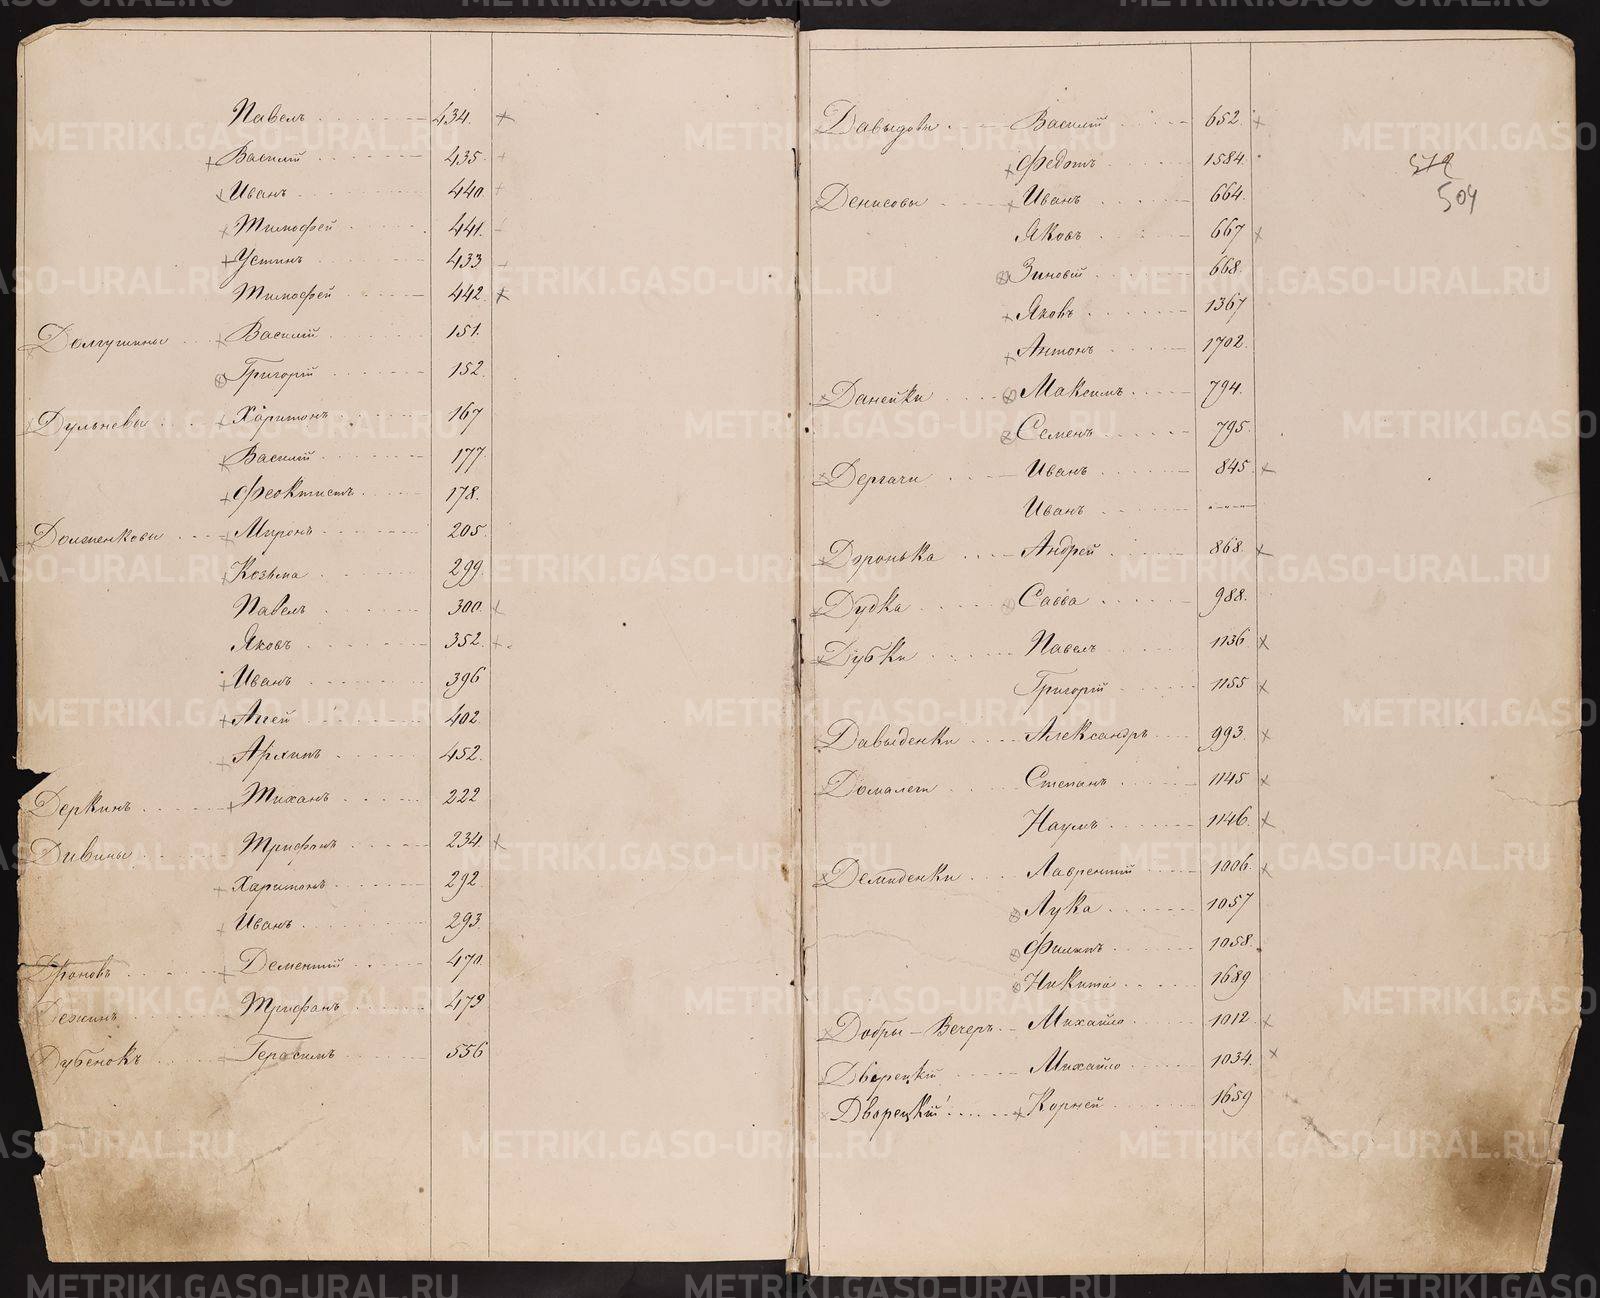 Павелъ 434.
Василій 435.
Иванъ 440.
Тимофей 441.
Устинъ 433
Тимофей 442.
Долгушины Василій 151.
Григорій 152.
Дульневы Харитонъ 167
Василій 177
Феоктистъ 178.
Долженковы Миронъ 205
Козьма 299.
Павелъ 300.
Яковъ 352.
Иванъ 396
Агей 402.
Архипъ 452.
Деркинъ 222
Дивины Трифонъ 234.
Харитонъ 292
Иванъ 293.
Дроновъ Дементій 470
Дежинъ Трифонъ 479
Дубенокъ Герасимъ 556
Давыдовы Василій 652.
Федотъ 1584.
Денисовы Иванъ 664.
Яковъ 667
Зиновій 668.
Яковъ 1367
Антонъ 1702.
Данейки Максимъ 794.
Семенъ 795.
Дергачи Иванъ 845.
Иванъ
Доронька Андрей 868.
Дудка Савва 988.
Дубки Павелъ 1136
Григорій 1155
Давыденки Александръ 993.
Домалеги Степанъ 1145
Наумъ 1146.
Демиденки Лаврентій 1006.
Лука 1057
Филипъ 1058.
Никита 1689
Добры-Вечеръ Михайло 1012
Дворецкій Михайло 1034.
Дворецкій Корней 1659
504
METRIKI.GASO-URAL.RU